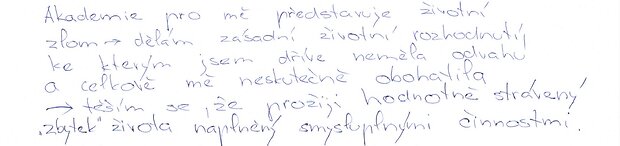 Akademie pro mě představuje životní
zlom → dělám zásadní životní rozhodnutí,
ke kterým jsem dříve neměla odvahu
a celkově mě neskutečně obohatila
→ těším se, že prožiji hodnotně strávený
"zbytek" života naplněný smysluplnými činnostmi.